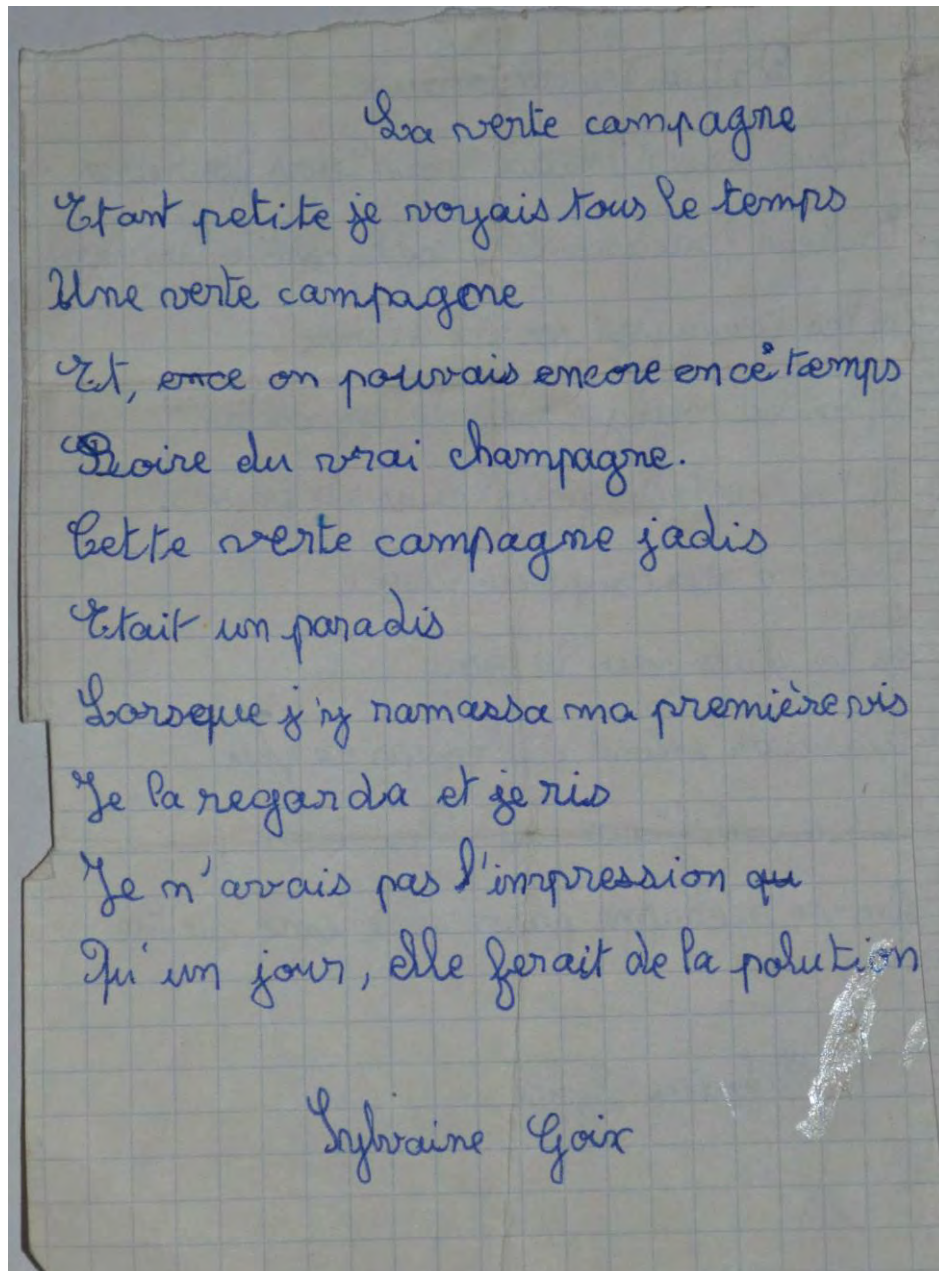 La verte campagne
Etant petite je voyais tous le temps
Une verte campagne
Et, ence on pouvais encore en ce temps
Boire du vrai champagne.
Cette verte campagne jadis
Etait un paradis
Lorseque j'y ramassa ma première vis
Je la regarda et je ris
Je n'avais pas l'impression qu
Qu'un jour, elle ferait de la polution
Sylvaine Goix